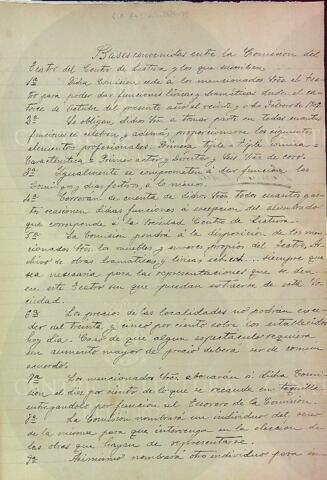 Bases convenidas entre la Comision del
Teatro del Centro de Lectura y los que suscriben.
1ª Dicha Comision cede á los mencionados Sres. el Tea-
tro para poder dar funciones líricas y dramáticas desde el ca-
torce de Octubre del presente año al veinte y ocho Febrero de
2ª Se obligan dichos Sres á tomar parte en todas cuantas
funciones se celebren y además proporcionaran los siguientes
elementos profesionales. Primera tiple = Tiple cómica =
Caracteristica = Primer actor y Director y seis Sras de coro.
3ª Igualmente se comprometen á dar funciones los
Domingos y dias festivos, á lo menos.
4ª Correran de cuenta de dichos Sres todos cuantos gas-
tos ocasionen dichas funciones á escepcion del alumbrado
que corresponde á la Sociedad Centro de Lectura.
5ª La Comisión pondrá á la disposición de los men-
cionados Sres. los muebles y enseres propios del Teatro, Ar-
chivo de obras dramáticas y líricas siempre que
sea necesaria para las representaciones que se den
en este Teatro sin que puedan extraerse de esta So-
ciedad.
6ª Los precios de las localidades no podrán exce-
der del treinta y cinco por ciento sobre los establecidos
hoy dia. Caso de que algun espectaculo requiera
un aumento mayor del precio debera ser de comun
acuerdo.
7ª Los mencionados Sres abonarán á dicha Comi-
sion el diez por ciento de lo que se recaude en taquilla
entregandolo por función al Tesorero de la Comisión.
8ª La Comisión nombrará un individuo del seno
de la misma para que intervenga en la eleccion de
las obras que hayan de representarse.
9ª Asimismo nombrará otro individuo para en